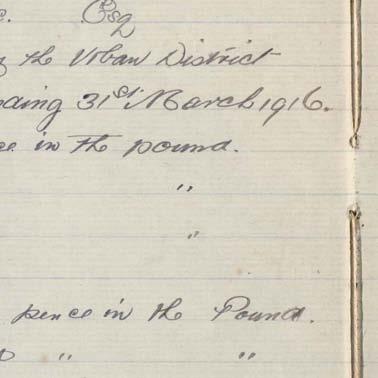 Esq
the Urban District
31st March 1916.
in the pound.
"
"
pence in the Pound.
" "